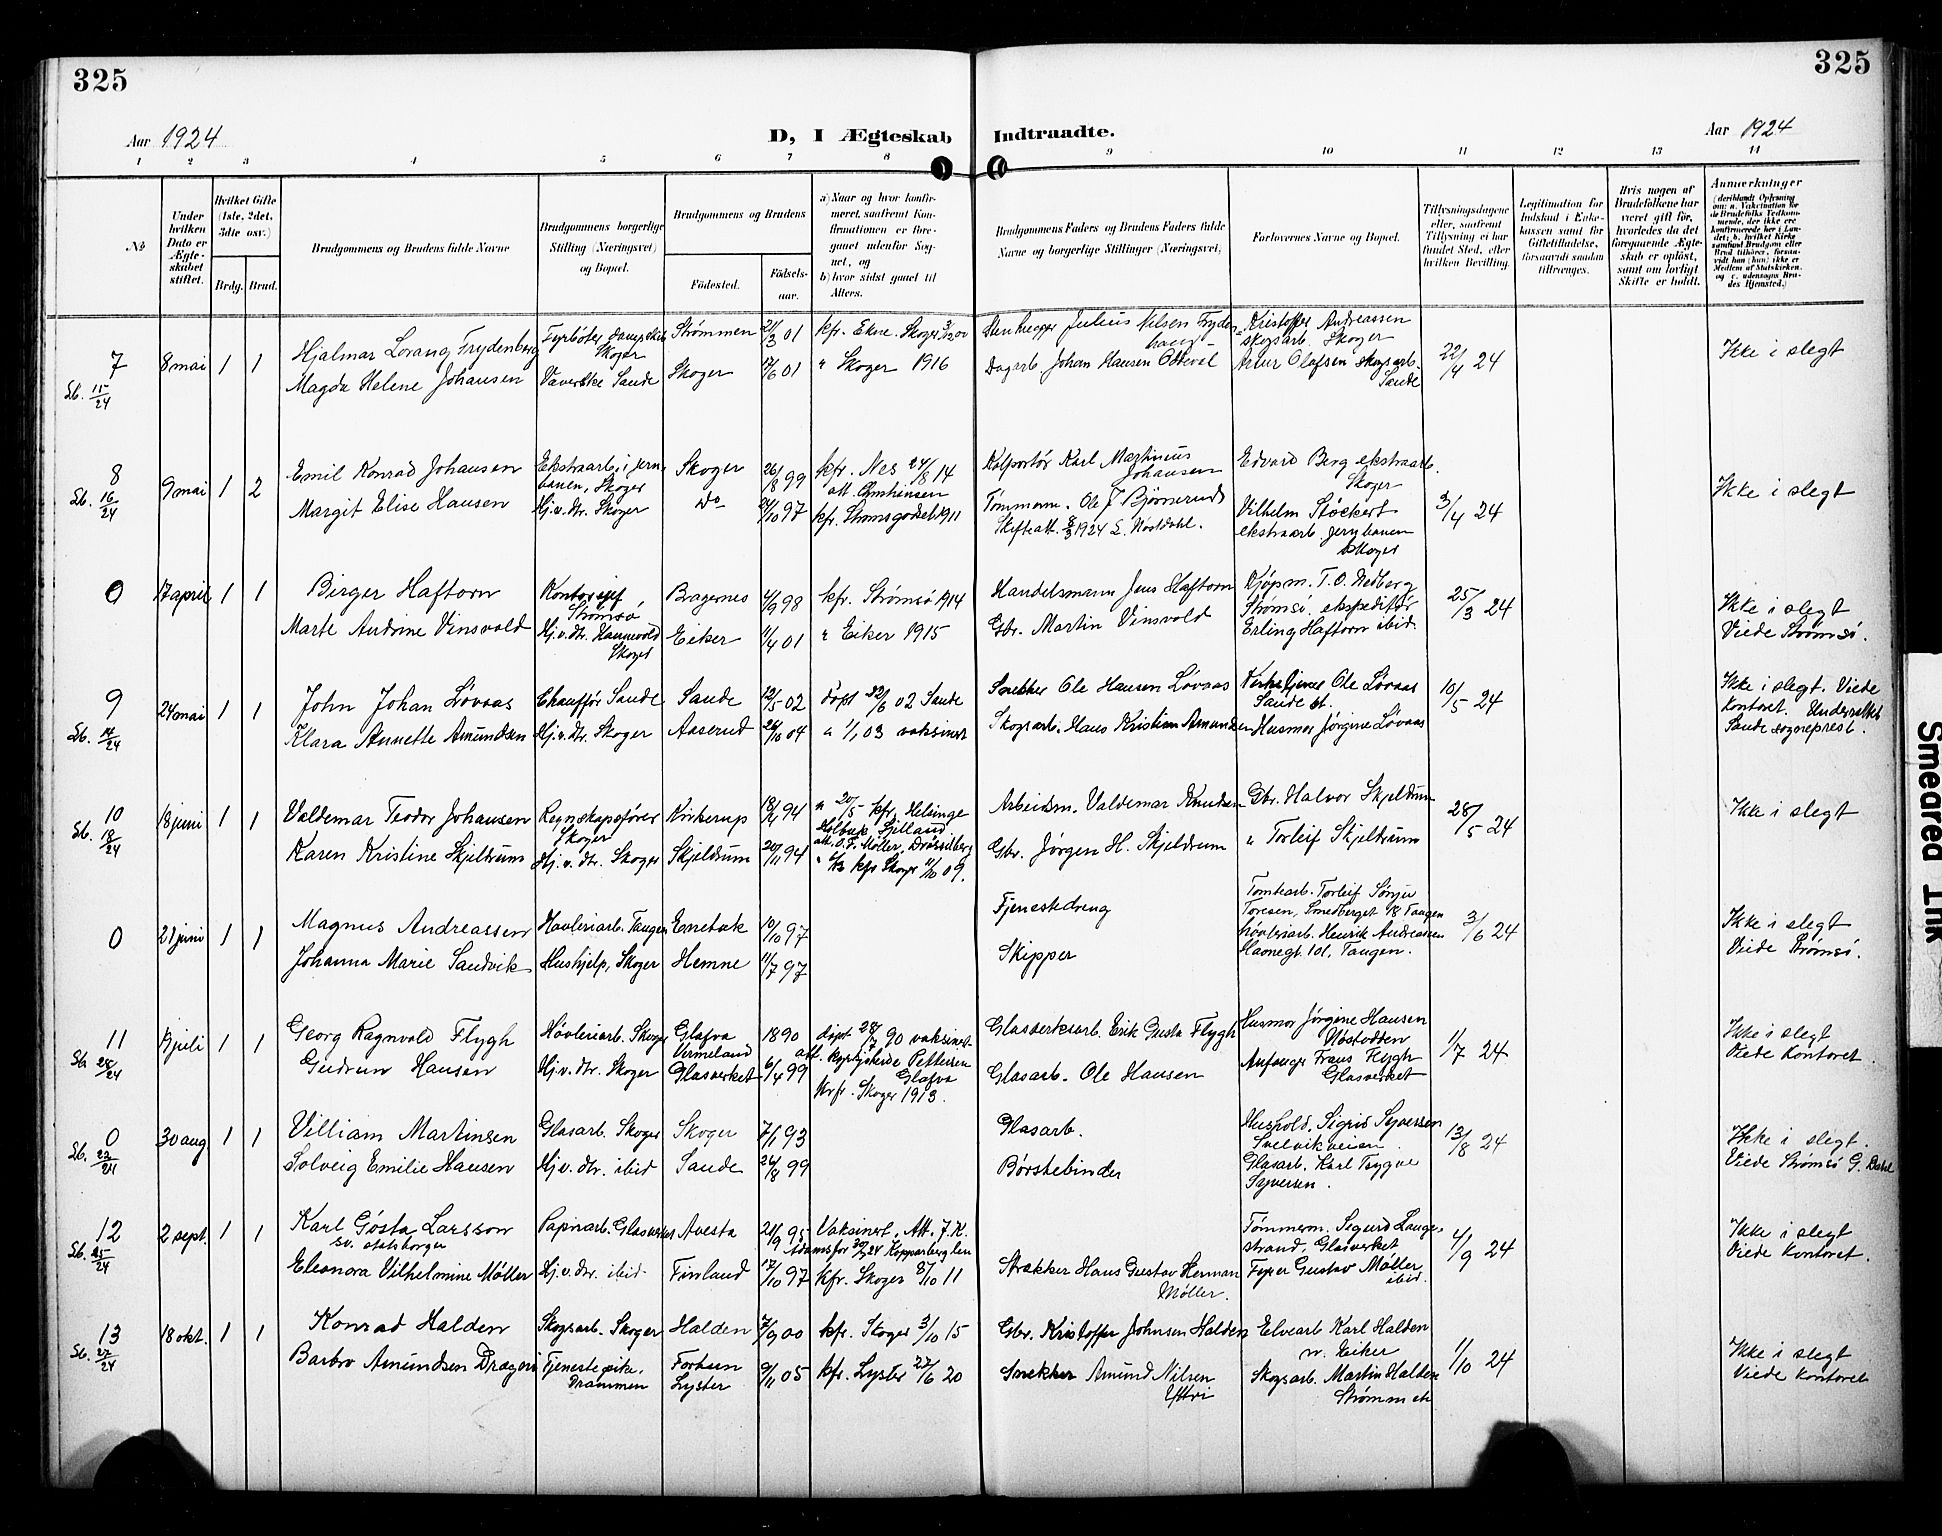 325
325
Aar 1924
D, I Ægteskab Indtraadte.
Aar 1924
1 2 3 4 5 6 7 8 9 10 11 12 13 14
No
Under hvilken Dato er Ægteskabet stiftet.
Hvilket Gifte (1ste, 2det, 3dte osv.)
Brdg. Brud.
Brudgommens og Brudens fulde Navne
Brudgommens borgerlige Stilling (Næringsvei) og Bopæl.
Brudgommens og Brudens
Födested.
Födsels-aar.
a) Naar og hvor konfirmeret, saafremt Konfirmationen er foregaaet udenfor Sognet, og
b) hvor sidst gaaet til Alters.
Brudgommens Faders og Brudens Faders fulde Navne og borgerlige Stillinger (Næringsvei)
Forlovernes Navne og Bopæl.
Tillysningsdagene eller, saafremt Tillysning ei har fundet Sted, efter hvilken Bevilling.
Legitimation for Indskud i Enkekassen samt for Giftetilladelse, forsaavidt saadan tiltrænges.
Hvis nogen af Brudefolkene har været gift før, hvorledes da det foregaaende Ægteskab er opløst, samt om lovligt Skifte er holdt.
Anmærkninger
7 8 mai 1 1 Hjalmar Lorang Frydenberg Fyrbøter Skoger Strømmen 21/3 01 kfr. Skoger
Julius Nilsen Kristoffer Andreassen skogsarb. Skoger
Sb. 15/24 Magda Helene Johansen Sande Skoger 17/6 01 " Skoger 1916
Dagarb. Johan Hansen Artur Olafsen skogsarb. Sande 22/4 24 Ikke i slegt
8 9 mai 1 2 Emil Konrad Johansen Ekstraarb. i jernbanen, Skoger Skoger 26/8 99 kfr. Nes 24/8 14
Kolportør Karl Martinius Johansen Edvard Berg ekstraarb. Skoger
Sb. 16/24 Margit Elise Hansen Hj.v.dtr. Skoger Do 24/10 97 kfr. Strømsgodset 1911
Tømmerm. Ole J. Bjørnerud Skifteatt. 8/3 1924 Vilhelm Støckert ekstraarb. jernbanen Skoger 3/4 24 Ikke i slegt
0 17 april 1 1 Birger Haftorn Strømsø Bragernes 4/9 98 kfr. Strømsø 1914
Handelsmann Jens Haftorn Kjøpm. T. O. Nedberg Strømsø. ekspeditør Erling Haftorn ibid.
Marte Andrine Vinsvold Hj.v.dtr. Skoger Eiker 11/4 01 " Eiker 1915
Gbr. Martin Vinsvold 25/3 24 Ikke i slegt Viede Strømsø.
9 24 mai 1 1 John Johan Løvaas Chauffør Sande Sande 12/5 02 døpt 22/6 02 Sande
Snekker Ole Hansen Løvaas Ole Løvaas Sande st.
Sb. 14/24 Klara Annette Amundsen Hj.v.dtr. Skoger Aaserud 04 " 1/1 03 vaksinert
Skogsarb. Hans Kristian Amundsen Husmor Jørgine Løvaas 10/5 24 Ikke i slegt. Viede kontoret. Underrettet Sande sogneprest.
10 18 juni 1 1 Valdemar Teodor Johansen Regnskapsfører Skoger Kirkerup 94 kfr. Helsinge
Arbeidsm. Valdemar Knudsen Gbr. Halvor Skjeldrum
Sb. 18/24 Karen Kristine Skjeldrum Hj.v.dtr. Skoger Skjeldrum 20/11 94 kfr Skoger 11/10 09.
Gbr. Jørgen H. Skjeldrum " Torleif Skjeldrum 28/5 24 Ikke i slegt
0 21 juni 1 1 Magnus Andreassen Høvleriarb. Tangen Enebak 10/10 97
Tjenestedreng Tomtearb. Torleif Sønju Toresen, Smedberget 18 Tangen
Johanna Marie Sandvik Hushjelp, Skoger Hemne 11/7 97
Skipper høvleriarb. Henrik Andreassen Havnegt. 101, Tangen. 3/6 24 Ikke i slegt Viede Strømsø.
11 juli 1 1 Georg Ragnvald Flygh Høvleriarb. Skoger Glafva Vermeland 1890 døpt 90 vaksinert att. kyrkjoherde Pettersen Glafva
Glasverksarb. Erik Gusta Flygh Husmor Jørgine Hansen
Gudrun Hansen Hj.v.dtr. Skoger Glasverket 6/4 99 Kfr. Skoger 1913.
Glasarb. Ole Hansen Frans Flygh Glasverket 1/7 24 Ikke i slegt Viede kontoret
0 30 aug 1 1 Villiam Martinsen Glasarb. Skoger Skoger 7/1 93
Glasarb. Hushold. Sigrid Syversen Svelvikveien.
Solveig Emilie Hansen Hj.v.dtr. ibid Sande 26/8 99
Børstebinder Glasarb. Karl Trygve Syversen. 13/8 24 Ikke i slegt. Viede Strømsø
12 2 sept. 1 1 Karl Gösta Larsson sv. statsborger Papirarb. Glasverket Avesta 21/9 95 Vaksinert. Att. Kopparberg len
Tømmerm. Sigurd Langestrand, Glasverket
Sb. 25/24 Eleonora Vilhelmine Møller Hj.v.dtr. ibid. Finland 17/10 97 kfr. Skoger 8/10 11
Strekker Hans Gustav Herman Møller. Gustav Møller ibid. 4/9 24 Ikke i slegt Viede kontoret.
13 18 okt. 1 1 Konrad Halden Skogsarb. Skoger Halden 7/9 00 kfr. Skoger 3/10 15
Gbr. Kristoffer Johnsen Halden Elvearb Karl Halden n. Eiker
Sb. 27/24 Barbro Amundsen Drægni Tjenestepike, Drammen Fortun Lyster 9/11 05 kfr. Lyster 27/6 20
Snekker Amund Nilsen Skogsarb. Martin Halden Strømmen 1/10 24 Ikke i slegt Viede kontoret
Smeared Ink